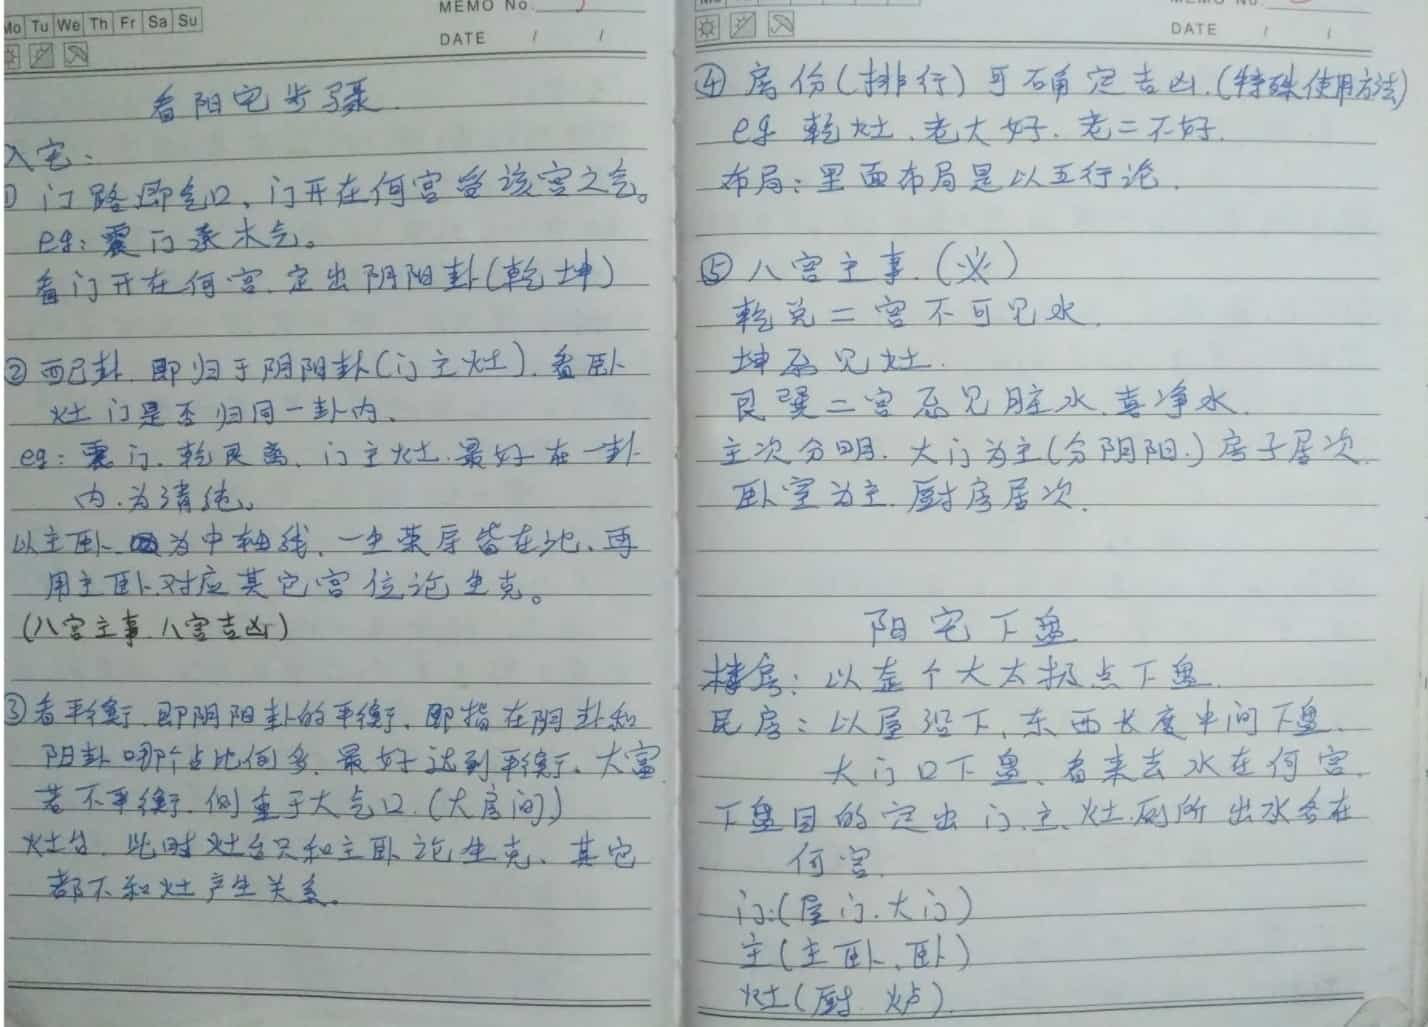 Mo Tu We Th Fr Sa Su
MEMO No.
DATE / /
看阳宅步骤
入宅:
① 门路即气口、门开在何宫受该宫之气。
eg: 震门承木气。
看门开在何宫.定出阴阳卦(乾坤)
② 配卦.即归于阴阳卦(门主灶).看卧
灶门是否归同一卦内.
eg: 震门.乾艮离.门主灶.最好在一卦
内.为清纯。
以主卧 为中轴线.一生荣辱皆在此、再
用主卧对应其它宫位论生克。
(八宫主事.八宫吉凶)
③ 看平衡.即阴阳卦的平衡.即指在阴卦和
阳卦哪个占比例多.最好达到平衡、大富.
若不平衡.侧重于大气口.(大房间)
灶台.此时灶台只和主卧论生克、其它
都不和灶产生关系.
MEMO No.
DATE / /
④ 房份(排行)可确定吉凶.(特殊使用方法)
eg 乾灶.老大好.老二不好.
布局:里面布局是以五行论.
⑤ 八宫主事.(必)
乾兑二宫不可见水.
坤忌见灶.
艮巽二宫忌见脏水.喜净水.
主次分明.大门为主(分阴阳.)房子居次.
卧室为主.厨房居次.
阳宅下盘
楼房:以整个大太极点下盘.
民房:以屋沿下、东西长度中间下盘.
大门口下盘、看来去水在何宫.
下盘目的定出门.主.灶.厕所出水各在
何宫.
门:(屋门.大门)
主(主卧、卧)
灶(厨 炉).